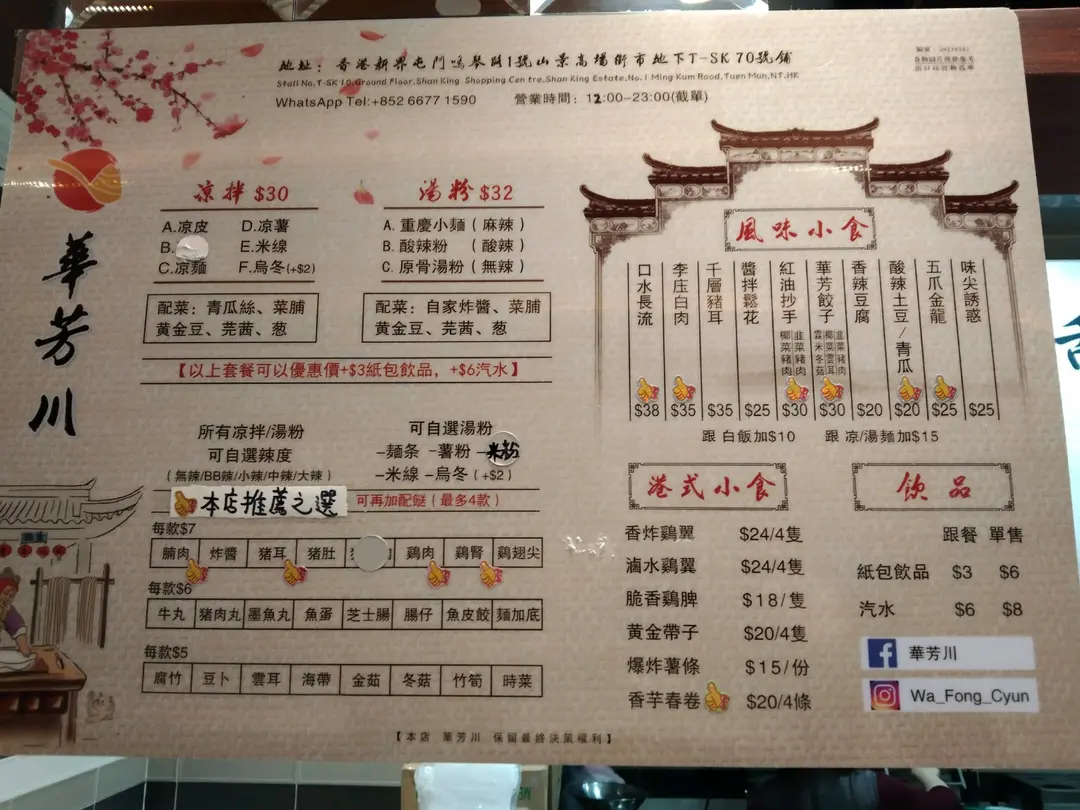 地址：香港新界屯門鳴琴路1號山景商場街市地下T-SK 70號鋪
Stall No.T-SK 10,Ground Floor,Shan King Shopping Centre,Shan King Estate,No.1 Ming Kum Road,Tuen Mun,NT.HK
WhatsApp Tel:+852 6677 1590 營業時間：12:00–23:00(截單)
華芳川
凉拌 $30
A.凉皮 D.凉薯
B. E.米線
C.凉麵 F.烏冬(+$2)
配菜：青瓜絲、菜脯
黄金豆、芫茜、葱
湯粉 $32
A. 重慶小麵（麻辣）
B. 酸辣粉（酸辣）
C. 原骨湯粉（無辣）
配菜：自家炸醬、菜脯
黄金豆、芫茜、葱
【以上套餐可以優惠價+$3紙包飲品，+$6汽水】
所有凉拌/湯粉
可自選辣度
（無辣/BB辣/小辣/中辣/大辣）
可自選湯粉
–麵条 –薯粉 –米粉
–米線 –烏冬（+$2）
本店推薦之選
可再加配餸（最多4款）
每款$7
腩肉 炸醬 猪耳 猪肚 鷄肉 鷄腎 鷄翅尖
每款$6
牛丸 猪肉丸 墨魚丸 魚蛋 芝士腸 腸仔 魚皮餃 麵加底
每款$5
腐竹 豆卜 雲耳 海帶 金菇 冬菇 竹筍 時菜
風味小食
口水長流 $38
李庄白肉 $35
千層豬耳 $35
醬拌鬆花 $25
紅油抄手 韭菜豬肉 椰菜豬肉 $30
華芳餃子 韭菜豬肉 椰菜雲耳 霖米冬菇 $30
香辣豆腐 $20
酸辣土豆/青瓜 $20
五爪金龍 $25
味尖誘惑 $25
跟 白飯加$10 跟 凉/湯麵加$15
港式小食
香炸鷄翼 $24/4隻
滷水鷄翼 $24/4隻
脆香鷄髀 $18/隻
黄金帶子 $20/4隻
爆炸薯條 $15/份
香芋春卷 $20/4條
飲品
跟餐 單售
紙包飲品 $3 $6
汽水 $6 $8
華芳川
Wa_Fong_Cyun
【本店 華芳川 保留最終決策權利】